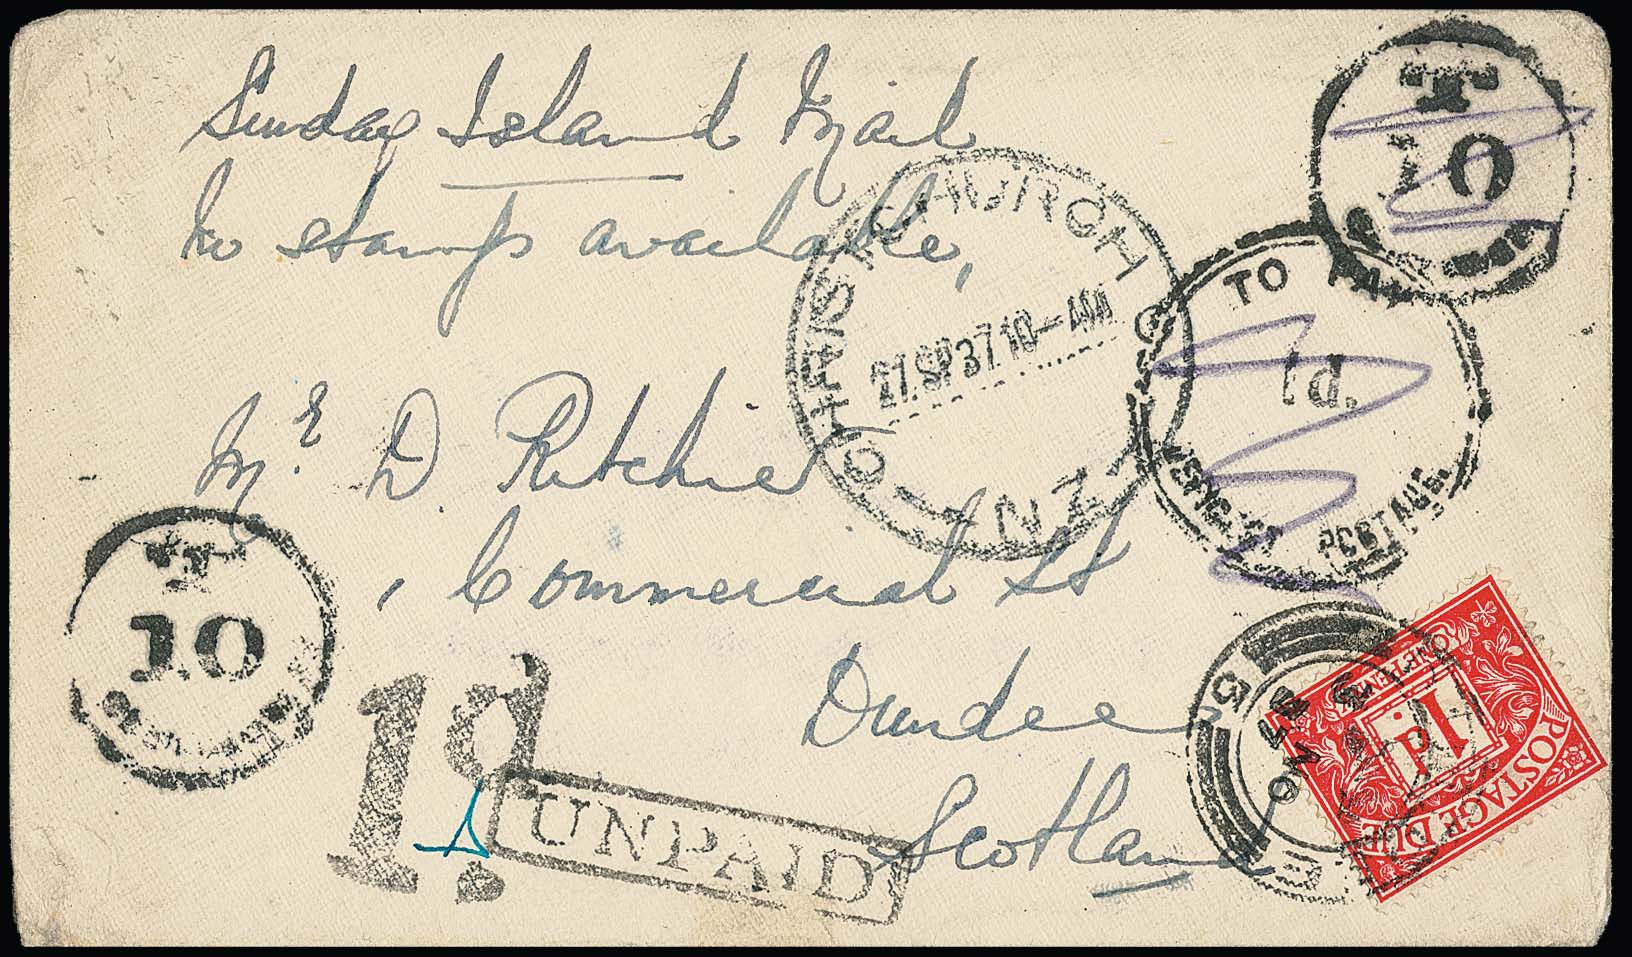 Sunday Island Mail
No stamps available,
T
10
TO PAY
1d.
POSTAGE.
CHRISTCHURCH
27.SP37.10-AM
N.Z.
Mr. D Ritchie
Commercial St
Dundee
Scotland
T
10
1d
UNPAID
5
NO
POSTAGE DUE
1d
ONE PENNY